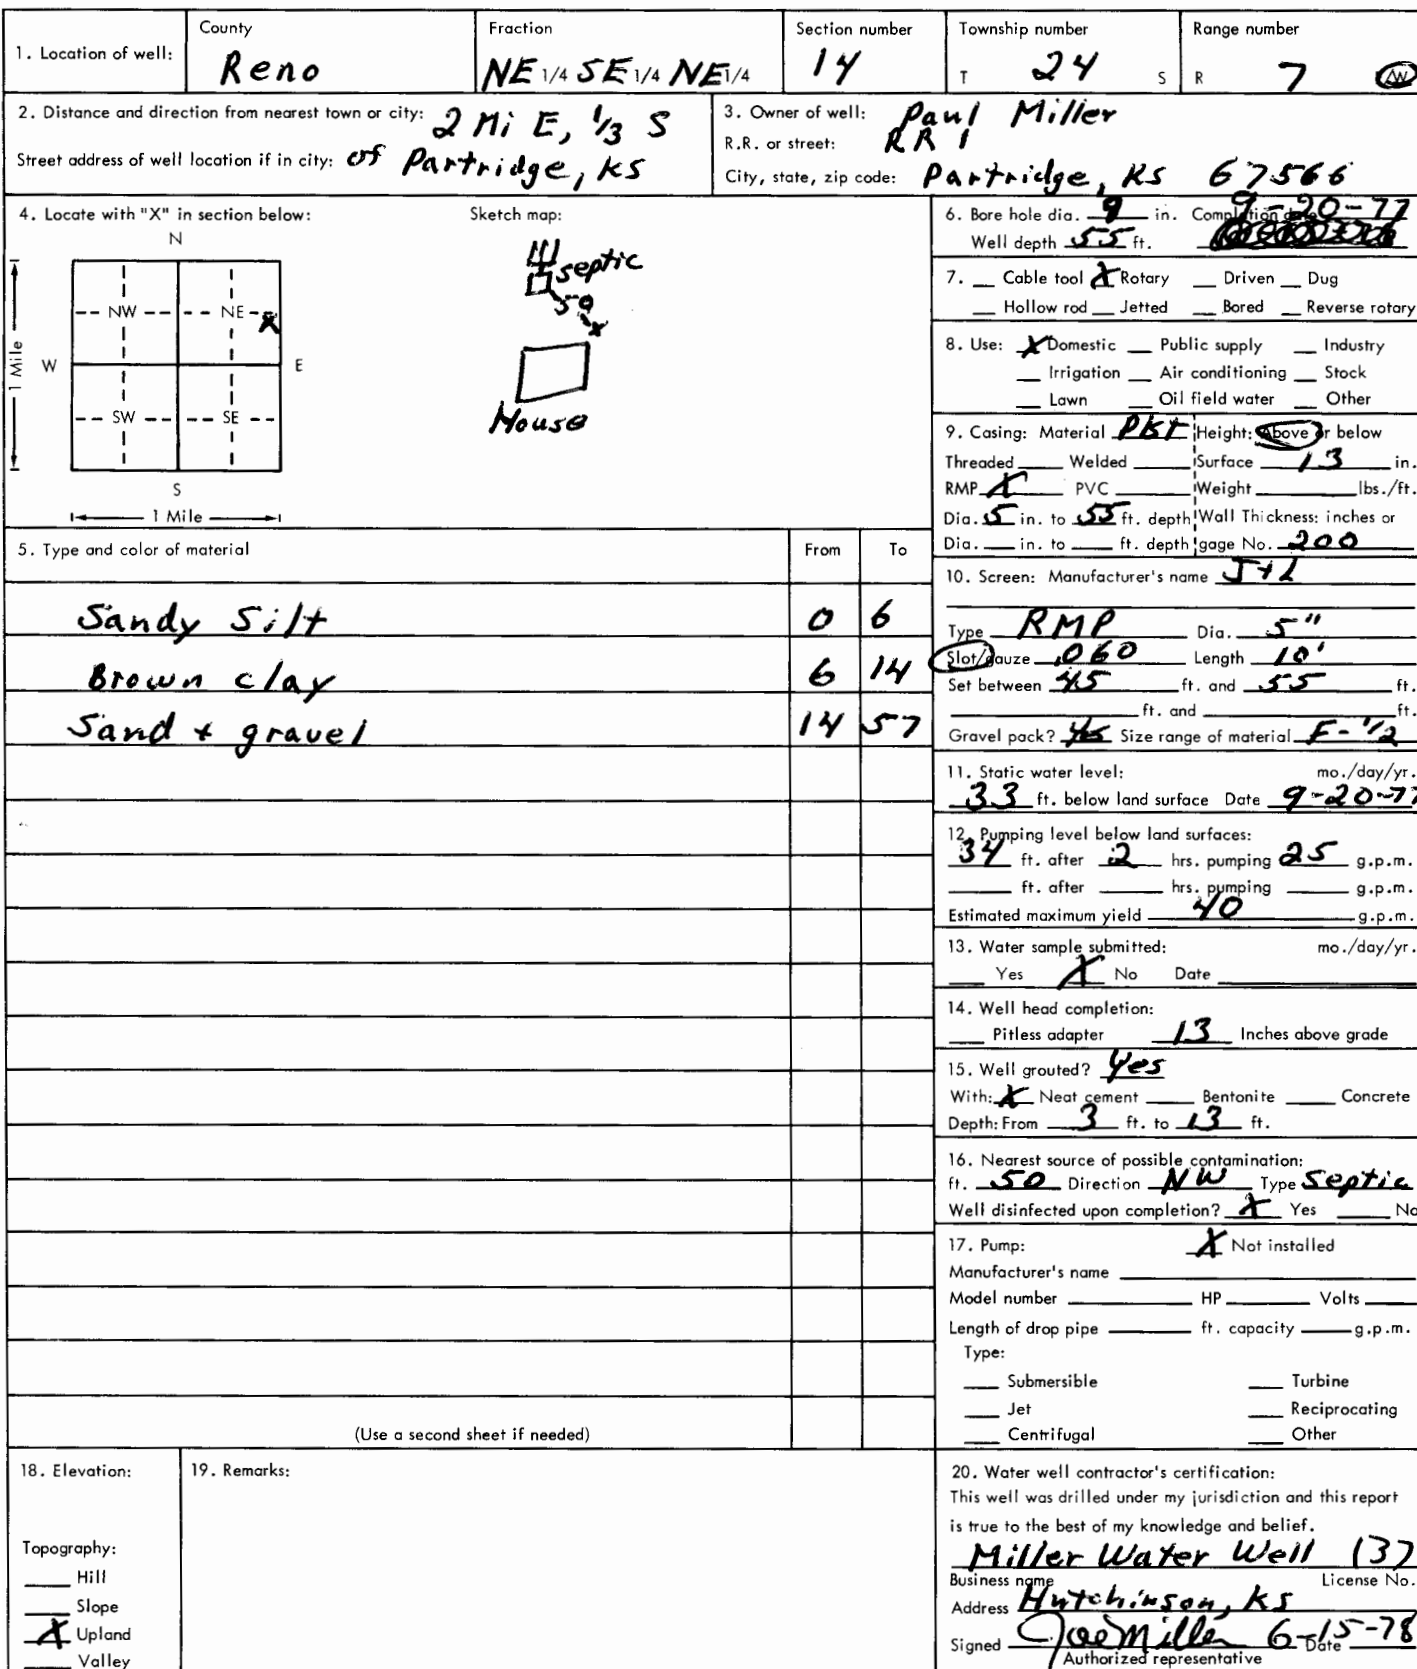 1. Location of well:
County
Reno
Fraction
NE 1/4 SE 1/4 NE 1/4
Section number
14
Township number
T 24 S
Range number
R 7 W
2. Distance and direction from nearest town or city: 2 Mi E, 1/3 S
Street address of well location if in city: of Partridge, KS
3. Owner of well: Paul Miller
R.R. or street: RR 1
City, state, zip code: Partridge, KS 67566
4. Locate with "X" in section below:
N
NW NE X
W E
SW SE
S
1 Mile
1 Mile
Sketch map:
septic
50
x
House
5. Type and color of material From To
Sandy Silt 0 6
Brown clay 6 14
Sand + gravel 14 57
(Use a second sheet if needed)
6. Bore hole dia. 9 in. Completion date 9-20-77
Well depth 55 ft.
7. __ Cable tool X Rotary __ Driven __ Dug
__ Hollow rod __ Jetted __ Bored __ Reverse rotary
8. Use: X Domestic __ Public supply __ Industry
__ Irrigation __ Air conditioning __ Stock
__ Lawn __ Oil field water __ Other
9. Casing: Material Height: Above or below
Threaded __ Welded __ Surface 13 in.
RMP X PVC __ Weight __ lbs./ft.
Dia. 5 in. to 55 ft. depth Wall Thickness: inches or
Dia. __ in. to __ ft. depth gage No. 200
10. Screen: Manufacturer's name J+L
Type RMP Dia. 5"
Slot/gauze .060 Length 10'
Set between 45 ft. and 55 ft.
__ ft. and __ ft.
Gravel pack? yes Size range of material F-1/2
11. Static water level: mo./day/yr.
33 ft. below land surface Date 9-20-77
12. Pumping level below land surfaces:
34 ft. after 2 hrs. pumping 25 g.p.m.
__ ft. after __ hrs. pumping __ g.p.m.
Estimated maximum yield 40 g.p.m.
13. Water sample submitted: mo./day/yr.
__ Yes X No Date __
14. Well head completion:
__ Pitless adapter 13 Inches above grade
15. Well grouted? Yes
With: X Neat cement __ Bentonite __ Concrete
Depth: From 3 ft. to 13 ft.
16. Nearest source of possible contamination:
ft. 50 Direction NW Type Septic
Well disinfected upon completion? X Yes __ No
17. Pump: X Not installed
Manufacturer's name __
Model number __ HP __ Volts __
Length of drop pipe __ ft. capacity __ g.p.m.
Type:
__ Submersible __ Turbine
__ Jet __ Reciprocating
__ Centrifugal __ Other
18. Elevation:
Topography:
__ Hill
__ Slope
X Upland
__ Valley
19. Remarks:
20. Water well contractor's certification:
This well was drilled under my jurisdiction and this report
is true to the best of my knowledge and belief.
Miller Water Well 137
Business name License No.
Address Hutchinson, KS
Signed Joe Miller 6-15-78
Date
Authorized representative